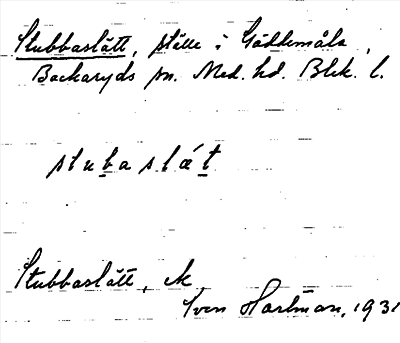 Stubbaslätt, ställe i Göddemåla,
Backaryds sn. Med. hd. Blek. l.
stubaslät
Stubbaslätt, M
Sven Hartman, 1931